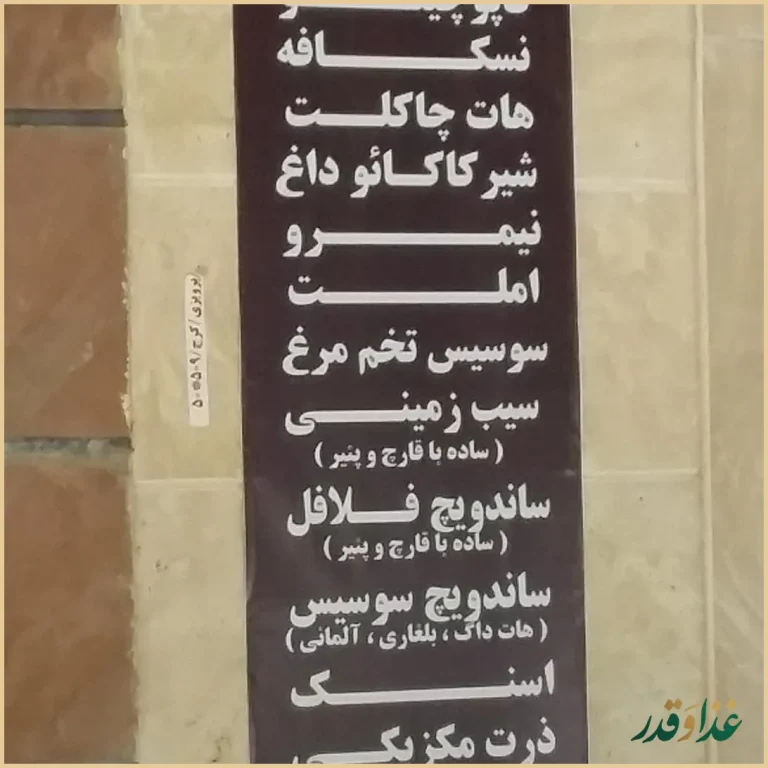 نسکافه
هات چاکلت
شیرکاکائو داغ
نیمرو
املت
سوسیس تخم مرغ
سیب زمینی
( ساده با قارچ و پنیر )
ساندویچ فلافل
( ساده با قارچ و پنیر )
ساندویچ سوسیس
( هات داگ ، بلغاری ، آلمانی )
اسنک
ذرت مکزیکی
غذا و قدر